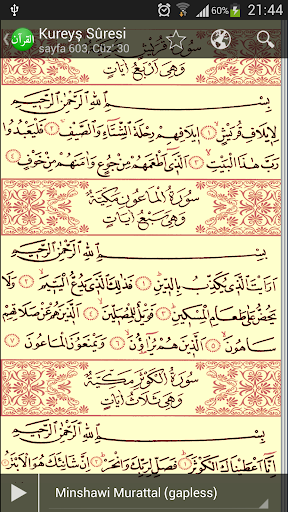 21:44
60%
القرآن
Kureyş Sûresi
sayfa 603, Cüz' 30
سورة قريش
وهي أربع آيات
بسم الله الرحمن الرحيم
لإيلاف قريش ﴿١﴾ إيلافهم رحلة الشتاء والصيف ﴿٢﴾ فليعبدوا
رب هذا البيت ﴿٣﴾ الذي أطعمهم من جوع وآمنهم من خوف ﴿٤﴾
سورة الماعون مكية
وهي سبع آيات
بسم الله الرحمن الرحيم
أرأيت الذي يكذب بالدين ﴿١﴾ فذلك الذي يدع اليتيم ﴿٢﴾ ولا
يحض على طعام المسكين ﴿٣﴾ فويل للمصلين ﴿٤﴾ الذين هم عن صلاتهم
ساهون ﴿٥﴾ الذين هم يراؤن ﴿٦﴾ ويمنعون الماعون ﴿٧﴾
سورة الكوثر مكية
وهي ثلاث آيات
بسم الله الرحمن الرحيم
إنا أعطيناك الكوثر ﴿١﴾ فصل لربك وانحر ﴿٢﴾ إن شانئك هو الأبتر
Minshawi Murattal (gapless)